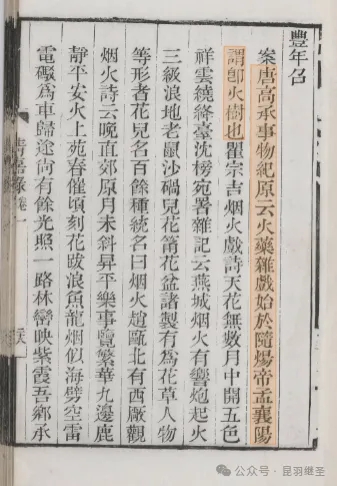 豐年召
案唐高承事物紀原云火藥雜戲始於隨煬帝孟襄陽
謂卽火樹也瞿宗吉烟火戲詩天花無數月中開五色
祥雲繞絳臺沈榜宛署雜記云燕城烟火有響炮起火
三級浪地老鼠沙碢兒花筩花盆諸製有爲花草人物
等形者花兒名百餘種統名曰烟火趙甌北有西厰觀
烟火詩云晚直郊原月未斜昇平樂事覽繁華九邊鹿
靜平安火上苑春催頃刻花跋浪魚龍烟似海劈空雷
電礮爲車歸途尙有餘光照一路林巒映紫霞吾鄉承
清嘉錄 卷一
公众号·昆羽继圣